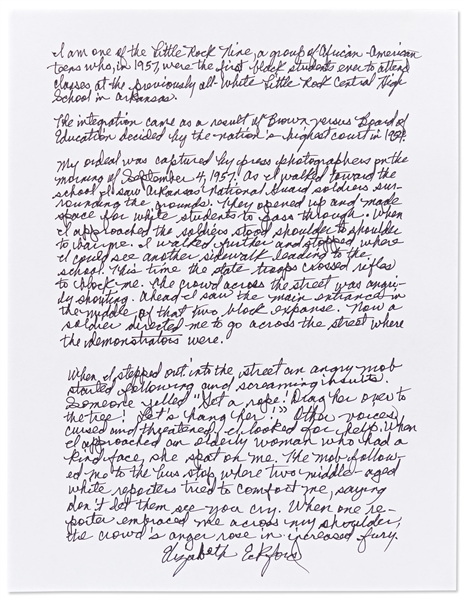 I am one of the Little Rock Nine, a group of African-American
teens who, in 1957, were the first black students ever to attend
classes at the previously all-white Little Rock Central High
School in Arkansas.
The integration came as a result of Brown versus Board of
Education decided by the nation's highest court in 1954.
My ordeal was captured by press photographers on the
morning of September 4, 1957. As I walked toward the
school I saw Arkansas National Guard soldiers sur-
rounding the grounds. They opened up and made
space for white students to pass through. When
I approached the soldiers stood shoulder to shoulder
to bar me. I walked further and stopped where
I could see another sidewalk leading to the
school. This time the state troops crossed rifles
to block me. The crowd across the street was angri-
ly shouting. Ahead I saw the main entrance in
the middle of that two block expanse. Now a
soldier directed me to go across the street where
the demonstrators were.
When I stepped out into the street an angry mob
started following and screaming insults.
Someone yelled "Get a rope! Drag her over to
the tree! Let's hang her!" Other voices
cursed and threatened. I looked for help. When
I approached an elderly woman who had a
kind face, she spat on me. The mob follow-
ed me to the bus stop where two middle-aged
white reporters tried to comfort me, saying
don't let them see you cry. When one re-
porter embraced me across my shoulder,
the crowd's anger rose in increased fury.
Elizabeth Eckford